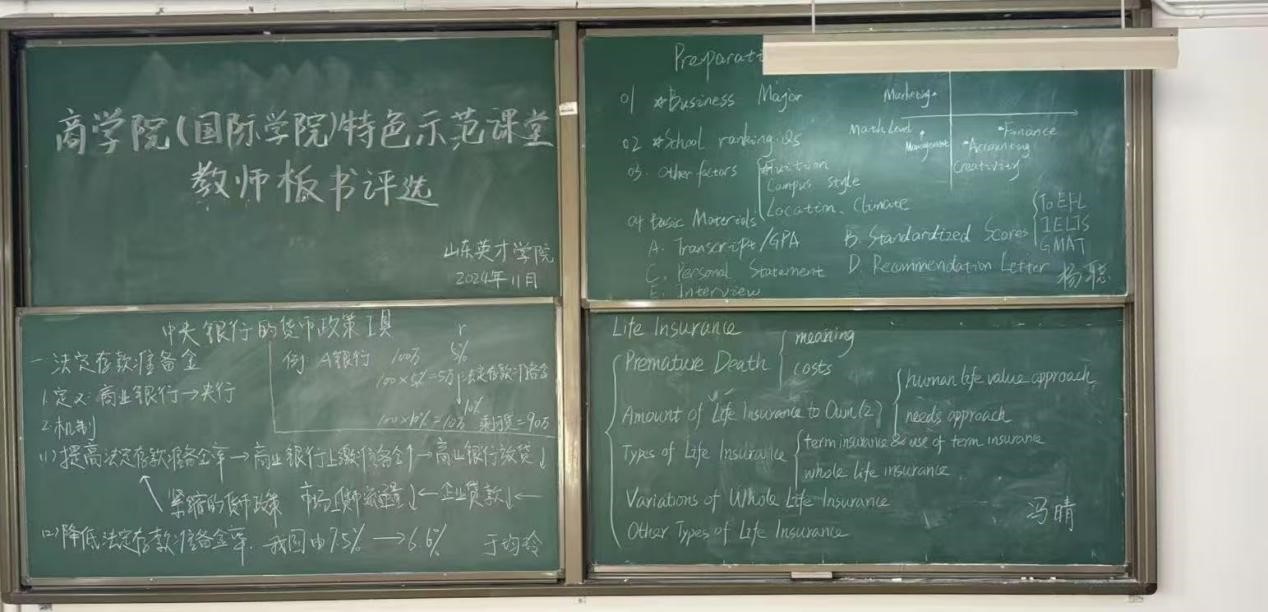 商学院(国际学院)特色示范课堂
教师板书评选
山东英才学院
2024年11月
中央银行的货币政策工具
一、法定存款准备金
1.定义:商业银行→央行
2.机制
例:A银行 100万 r 5%
100×5%=5万 法定存款准备金
↓10%
100×10%=10万 剩贷=90万
(1)提高法定存款准备金率→商业银行上缴准备金↑→商业银行放贷↓
紧缩的货币政策 市场货币流通量↓←企业贷款↓←
(2)降低法定存款准备金率. 我国由7.5%→6.6%
于均玲
Preparati
01 *Business Major
02 *School ranking. Qs
03. Other factors
Tuition
Campus style
Location. Climate
Marketing
Math Level
Management
Finance
Accounting
Creativity
04 Basic Materials
A. Transcript/GPA B. Standardized Scores
ToEFL
IELTS
GMAT
C. Personal Statement D. Recommendation Letter
E. Interview
杨聪
Life Insurance
Premature Death
meaning
costs
Amount of Life Insurance to Own(2)
human life value approach
needs approach
Types of Life Insurance
term insurance & use of term insurance
whole life insurance
Variations of Whole Life Insurance
Other Types of Life Insurance
冯晴